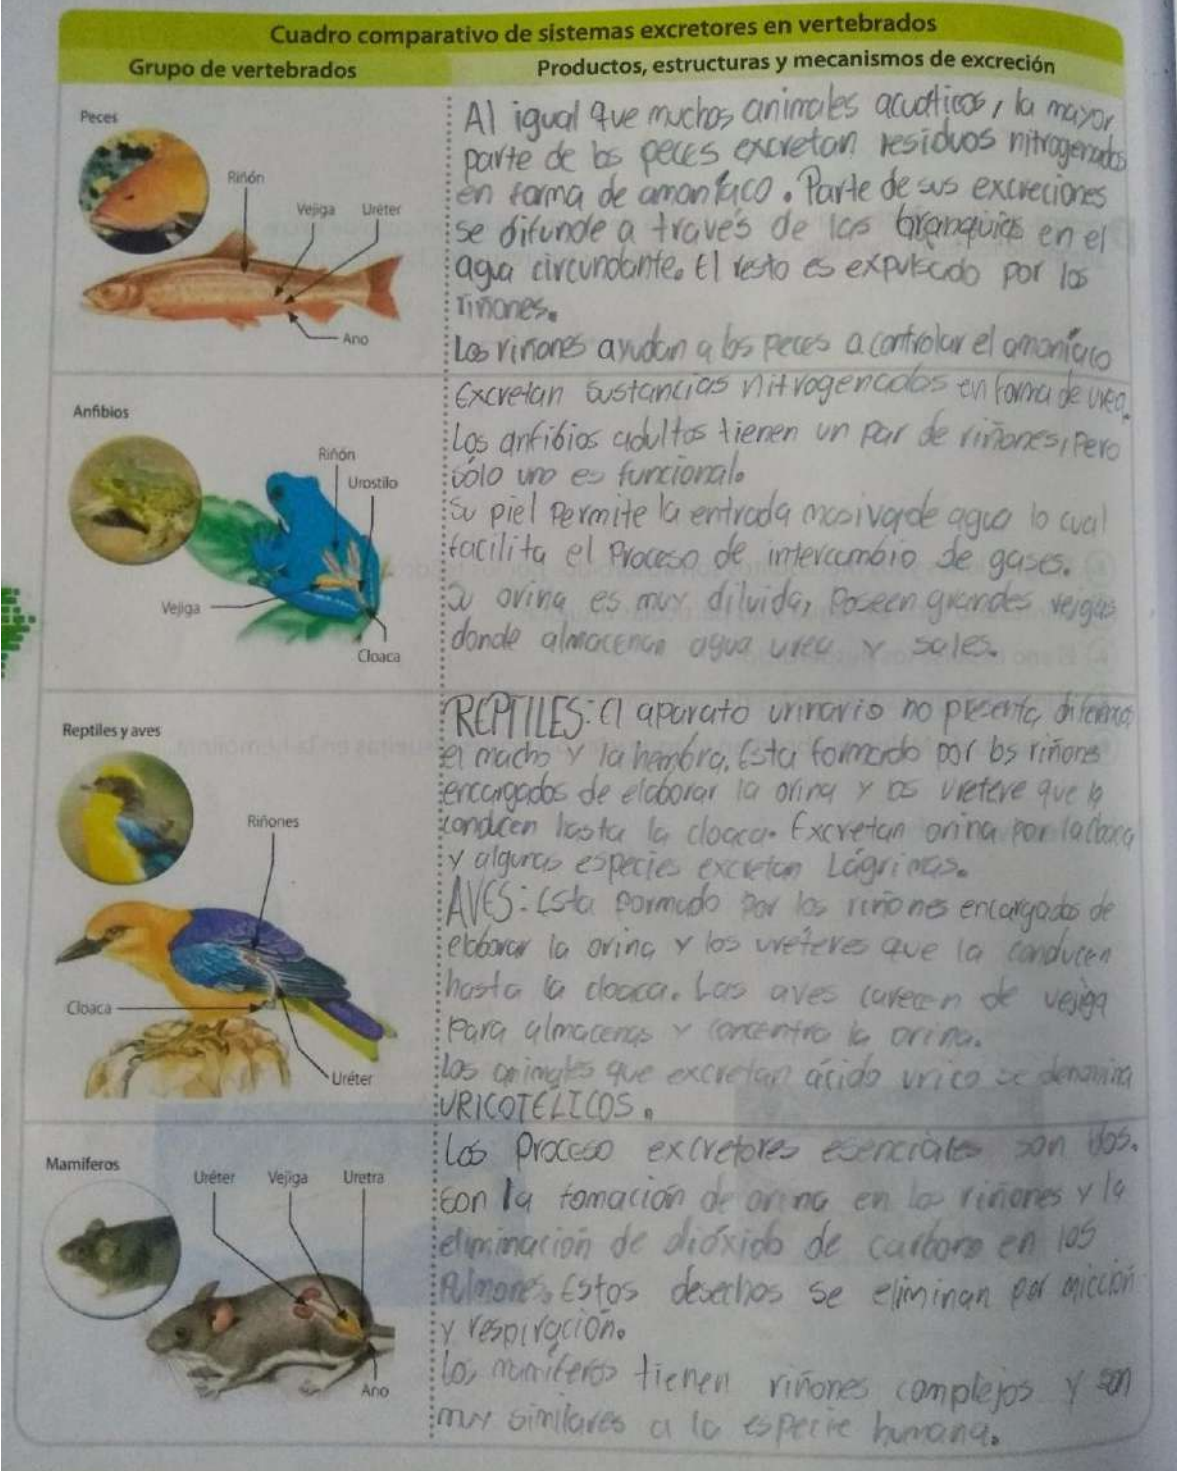 Cuadro comparativo de sistemas excretores en vertebrados
Grupo de vertebrados
Productos, estructuras y mecanismos de excreción
Peces
Riñón
Vejiga
Uréter
Ano
Al igual que muchos animales acuáticos, la mayor
parte de los peces excretan residuos nitrogenados
en forma de amoníaco. Parte de sus excreciones
se difunde a través de las branquias en el
agua circundante. El resto es expulsado por los
riñones.
Los riñones ayudan a los peces a controlar el amoníaco
Anfibios
Riñón
Urostilo
Vejiga
Cloaca
Excretan sustancias nitrogenadas en forma de urea.
Los anfibios adultos tienen un par de riñones, pero
sólo uno es funcional.
Su piel permite la entrada masiva de agua lo cual
facilita el proceso de intercambio de gases.
Su orina es muy diluida, poseen grandes vejigas
donde almacenan agua urea y sales.
Reptiles y aves
Riñones
Cloaca
Uréter
REPTILES: El aparato urinario no presenta diferencia
el macho y la hembra. Esta formado por los riñones
encargados de elaborar la orina y los uretere que la
conducen hasta la cloaca. Excretan orina por la cloaca
y algunas especies excretan Lágrimas.
AVES: Esta formado por los riñones encargados de
elaborar la orina y los uréteres que la conducen
hasta la cloaca. Las aves carecen de vejiga
para almacenas y concentra la orina.
Los animales que excretan ácido urico se denomina
URICOTELICOS.
Mamíferos
Uréter
Vejiga
Uretra
Ano
Los proceso excretores esenciales son dos.
son la formación de orina en los riñones y la
eliminación de dióxido de carbono en los
Pulmones. Estos desechos se eliminan por micción
y respiración.
Los mamíferos tienen riñones complejos y son
muy similares a la especie humana.